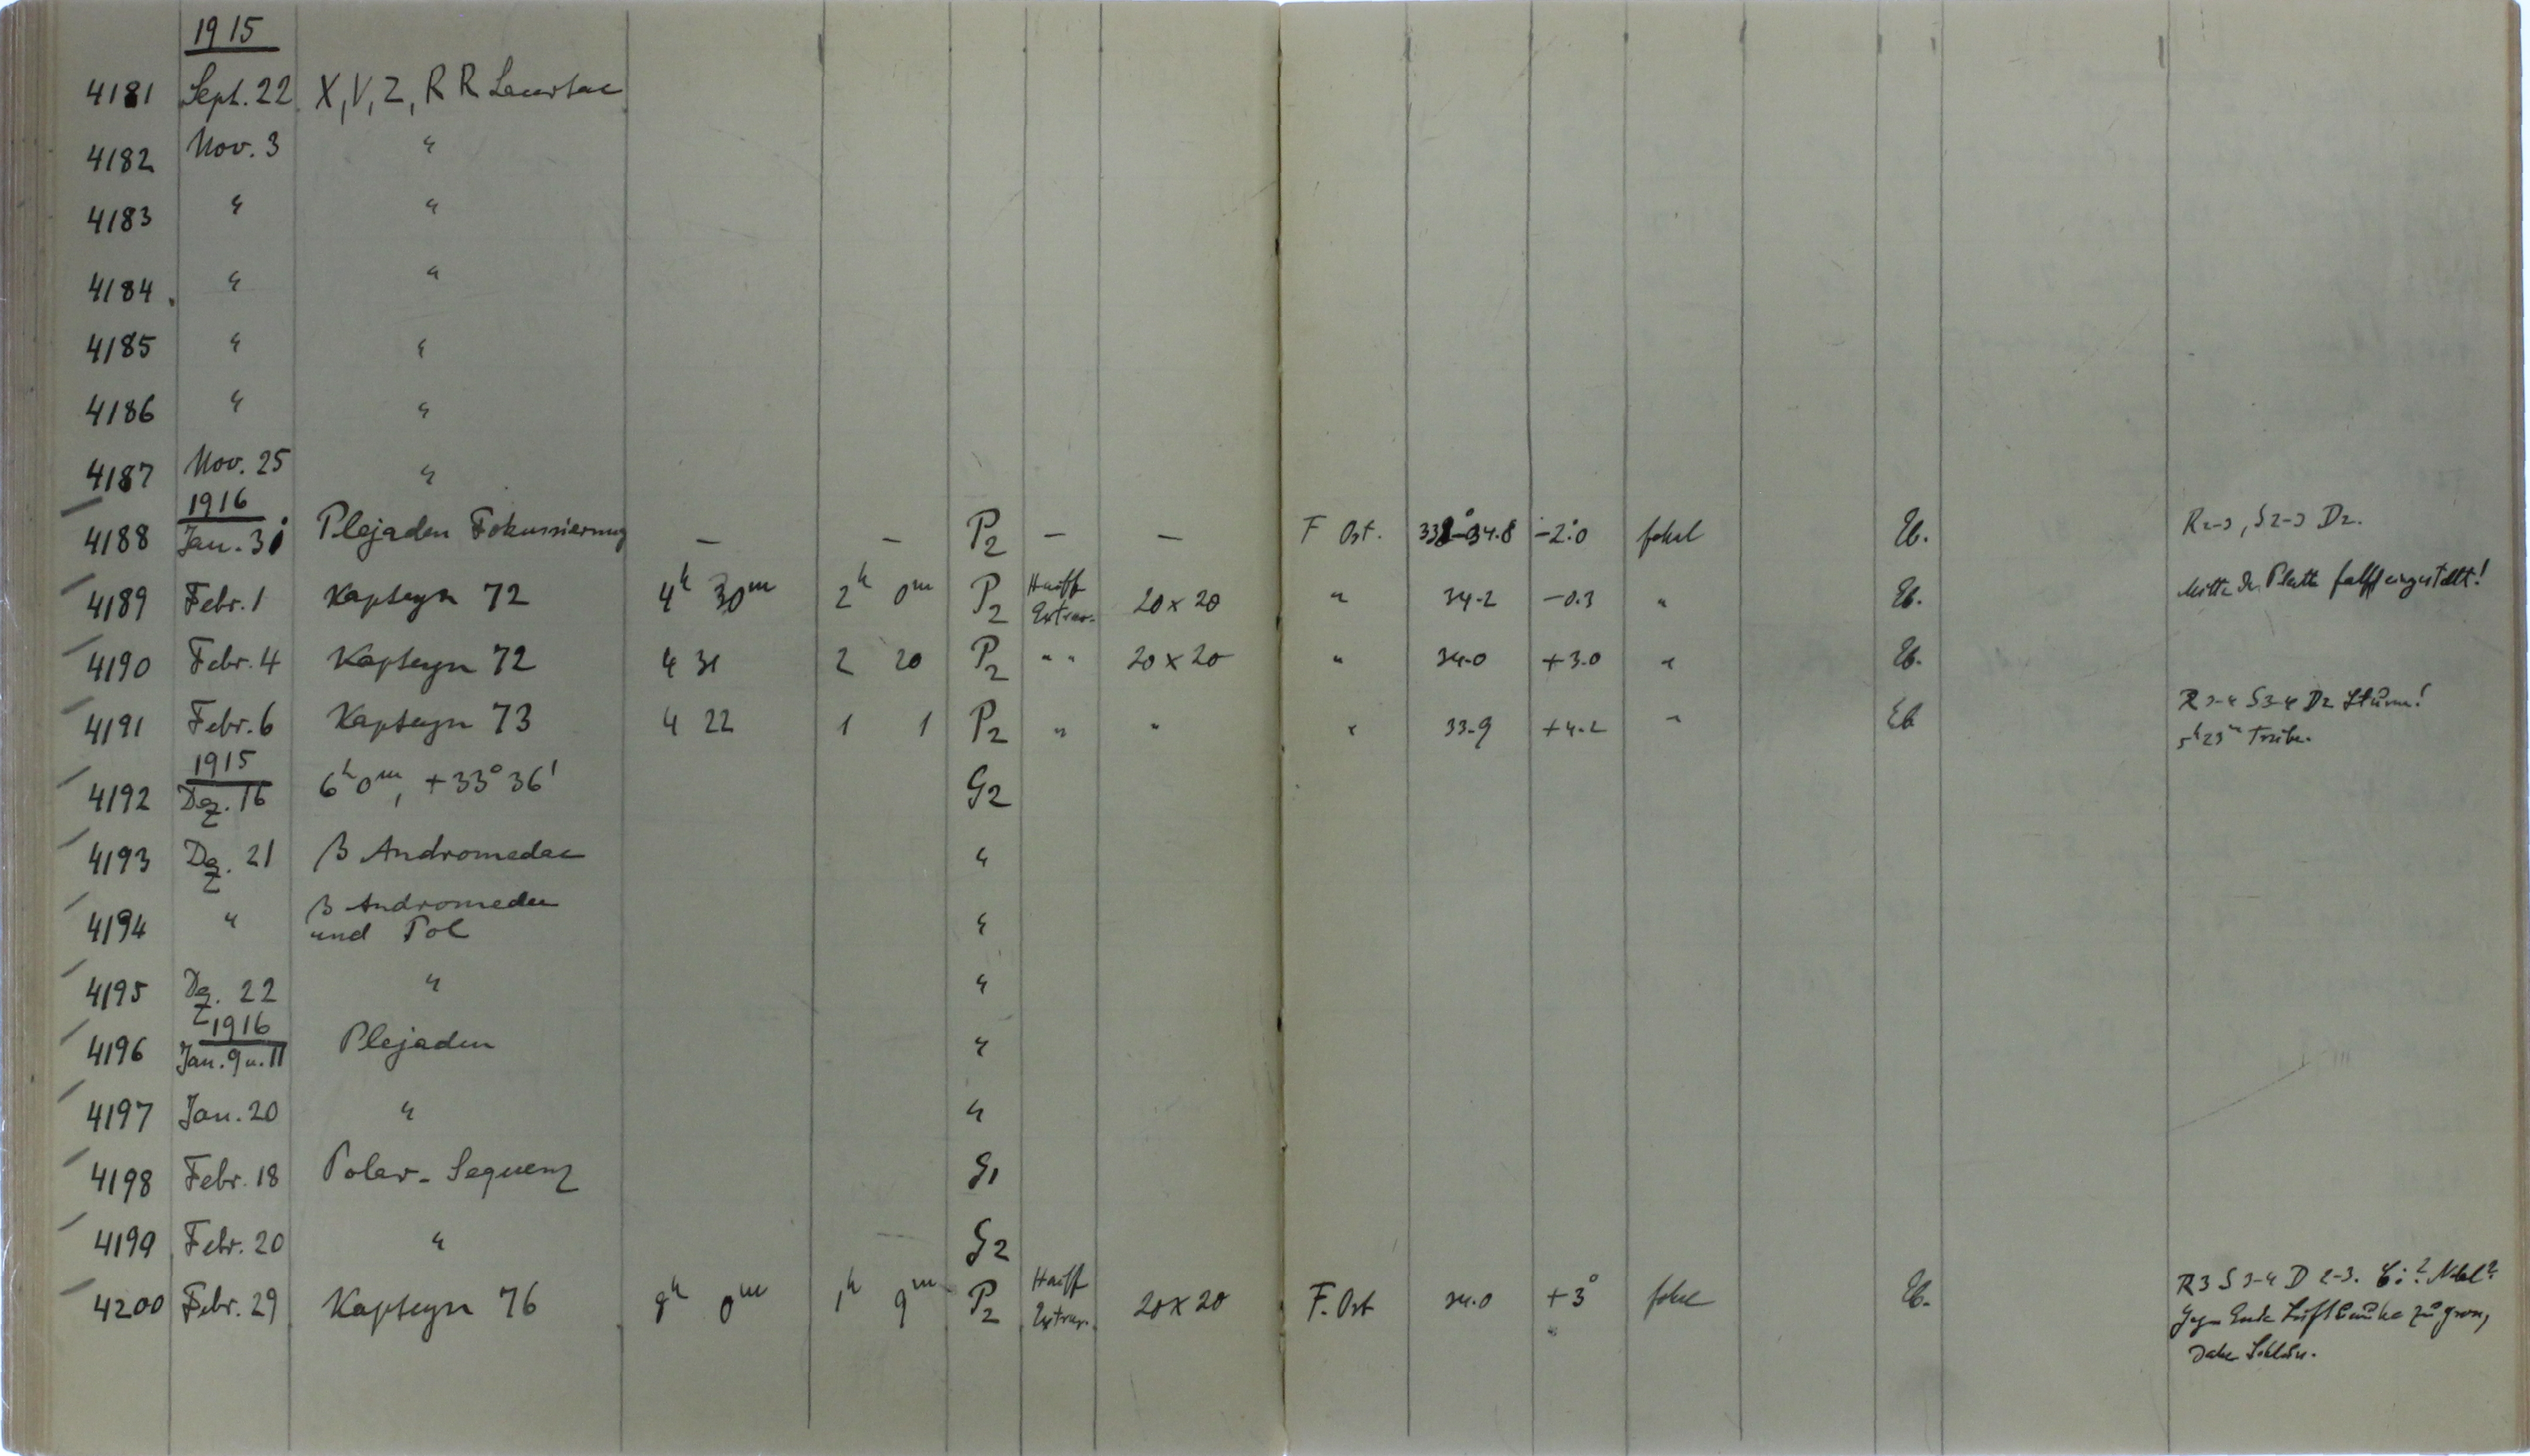 1915
4181 Sept. 22 X, V, Z, RR
4182 Nov. 3 "
4183 " "
4184 " "
4185 " "
4186 " "
4187 Nov. 25 "
1916
4188 Jan. 31 Plejaden Fokussierung — — P2 — — F Ost. 34.8 -2°.0 fokal Eb. R2-3, S2-3 D2.
4189 Febr. 1 Kapteyn 72 4h 30m 2h 0m P2 Hauff Extrar. 20 x 20 " 34.2 -0.3 " Eb. Mitte der Platte falsch eingestellt!
4190 Febr. 4 Kapteyn 72 4 31 2 20 P2 " " 20 x 20 " 34.0 +3.0 " Eb.
4191 Febr. 6 Kapteyn 73 4 22 1 1 P2 " " " 33.9 +4.2 " Eb R3-4 S3-4 D2 Sturm!
5h 23m Trübe.
1915
4192 Dez. 16 6h 0m, +33° 36' G2
4193 Dez. 21 β Andromedae "
4194 " β Andromedae
und Pol "
4195 Dez. 22 " "
1916
4196 Jan. 9 u. 11 Plejaden "
4197 Jan. 20 " "
4198 Febr. 18 Polar-Sequenz G1
4199 Febr. 20 " G2
4200 Febr. 29 Kapteyn 76 8h 0m 1h 9m P2 Hauff Extrar. 20 x 20 F. Ost 34.0 +3° fokal Eb. R3 S3-4 D2-3. Ci? Nebel?
Gegen Ende zu gross,
daher Schluss.